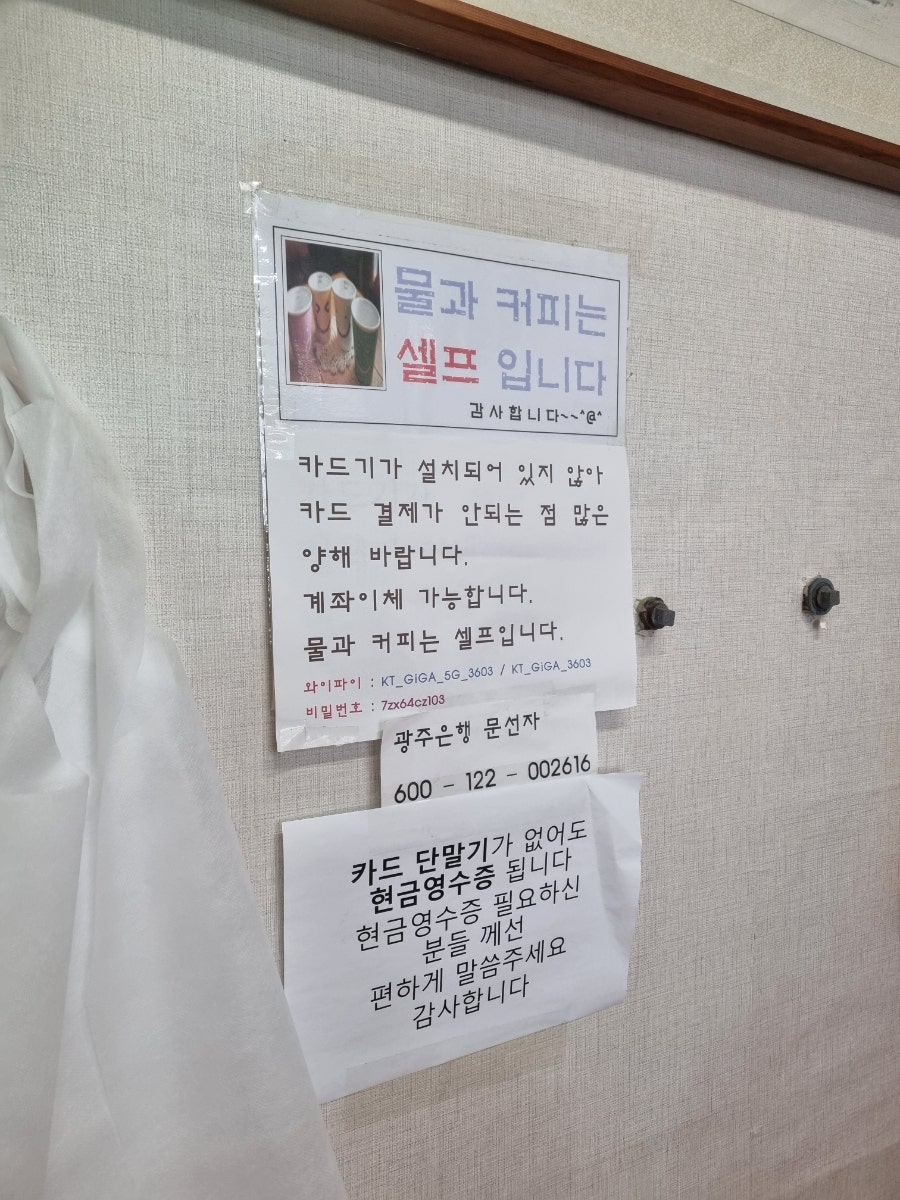 물과 커피는
셀프 입니다
감사합니다~~^@^
카드기가 설치되어 있지 않아
카드 결제가 안되는 점 많은
양해 바랍니다.
계좌이체 가능합니다.
물과 커피는 셀프입니다.
와이파이 : KT_GiGA_5G_3603 / KT_GiGA_3603
비밀번호 : 7zx64cz103
광주은행 문선자
600 - 122 - 002616
카드 단말기가 없어도
현금영수증 됩니다
현금영수증 필요하신
분들 께선
편하게 말씀주세요
감사합니다